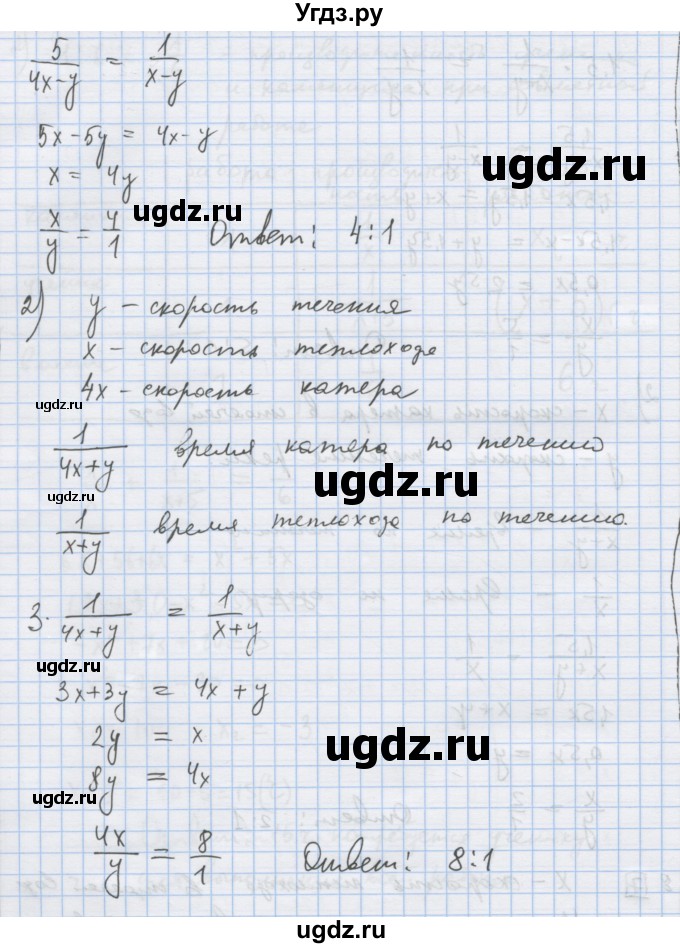 Угдз.ру
5/(4x-y) = 1/(x-y)
5x-5y = 4x-y
x = 4y
ugdz.ru
ugdz.ru
x/y = 4/1 Ответ: 4:1
2) y – скорость течения
x – скорость теплохода
4x – скорость катера
ugdz.ru
1/(4x+y) время катера по течению
ugdz.ru
1/(x+y) время теплохода по течению.
3·1/(4x+y) = 1/(x+y)
ugdz.ru
3x+3y = 4x+y
2y = x
ugdz.ru
8y = 4x
ugdz.ru
4x/y = 8/1 Ответ: 8:1
Угдз.ру